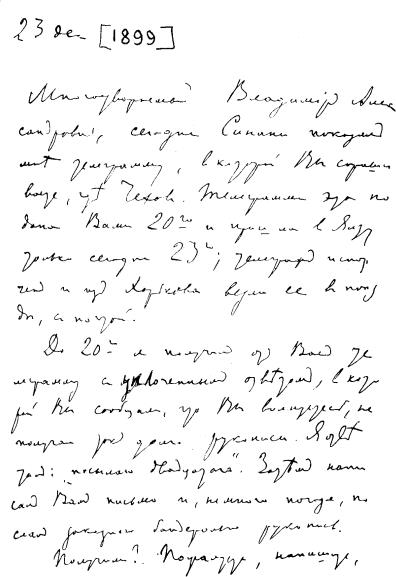 23 дек [1899]
Многоуважаемый Владимір Алек
сандровичъ, сегодня Синани показывалъ
мнѣ телеграмму, въ которой Вы спраши
ваете, гдѣ Чеховъ. Телеграмма эта по
дана Вами 20го и пришла въ Ялту
только сегодня 23го; телеграфъ испор
ченъ и изъ Харькова везли ее въ поѣз
дѣ, съ почтой.
До 20го я получилъ отъ Васъ те
леграмму съ уплоченнымъ отвѣтомъ, въ кото
рой Вы сообщали, что Вы волнуетесь, не
получая такъ долго рукописи. Я отвѣ
тилъ: "посылаю двадцатаго". Затѣмъ напи
салъ Вамъ письмо и, немного погодя, по
слалъ заказной бандеролью рукопись.
Получили? Пожалуйста, напишите,